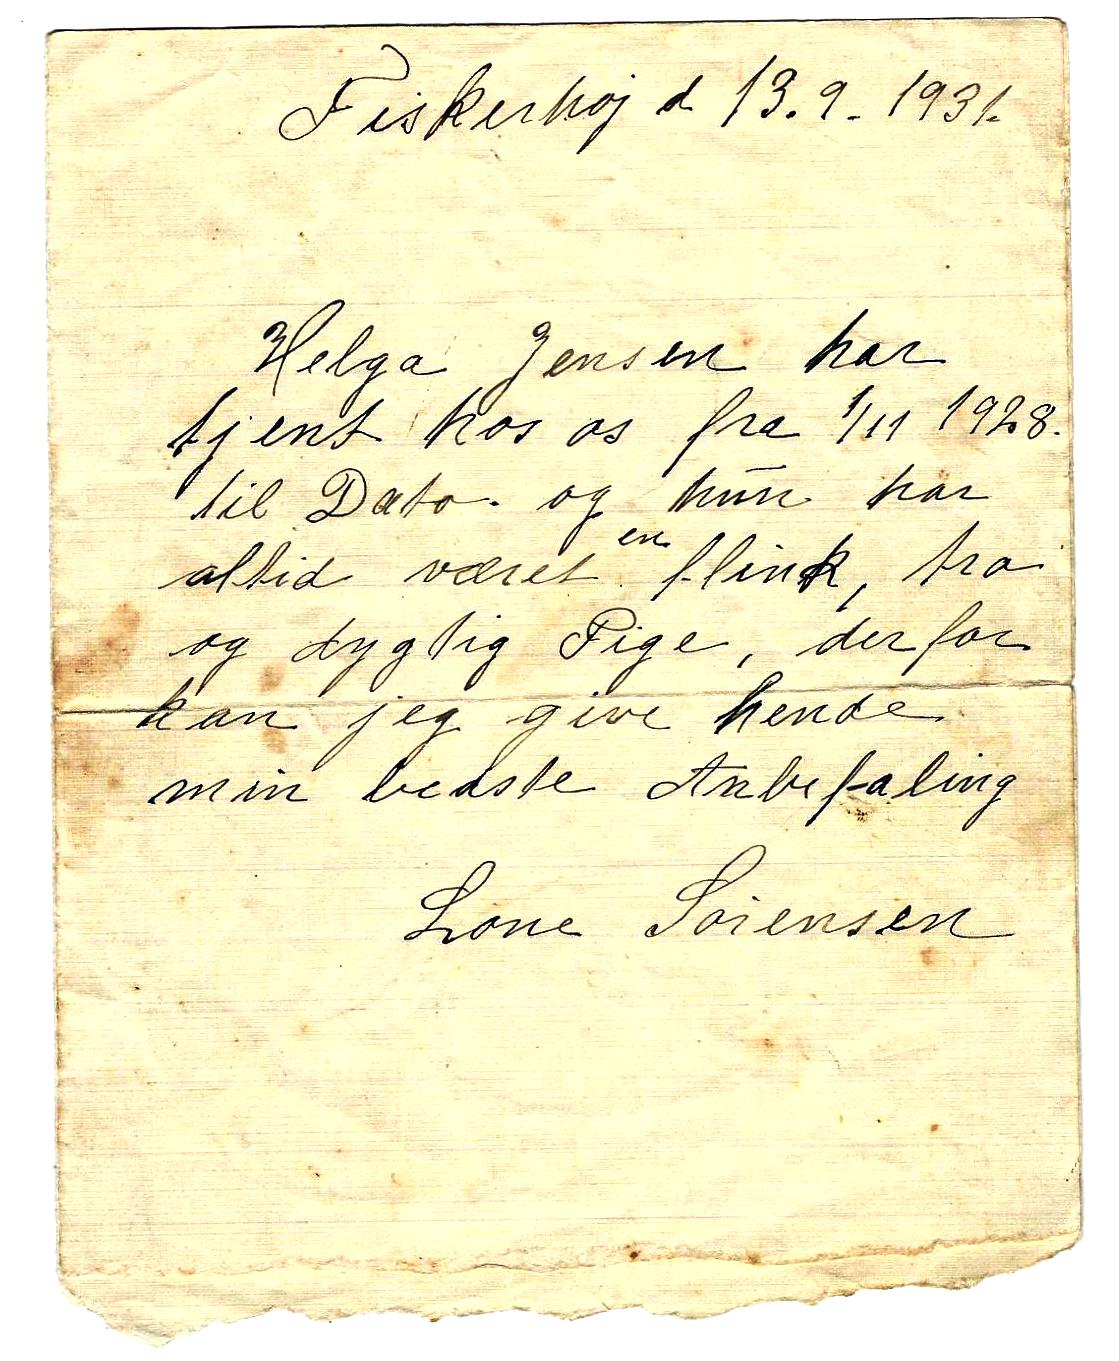 Fiskerhøj d 13.9. 1931.
Helga Jensen har
tjent hos os fra 1/11 1928.
til Dato. og hūn har
altid været en flink, tro
og dygtig Pige, derfor
kan jeg give hende
min bedste Anbefaling
Lone Sørensen